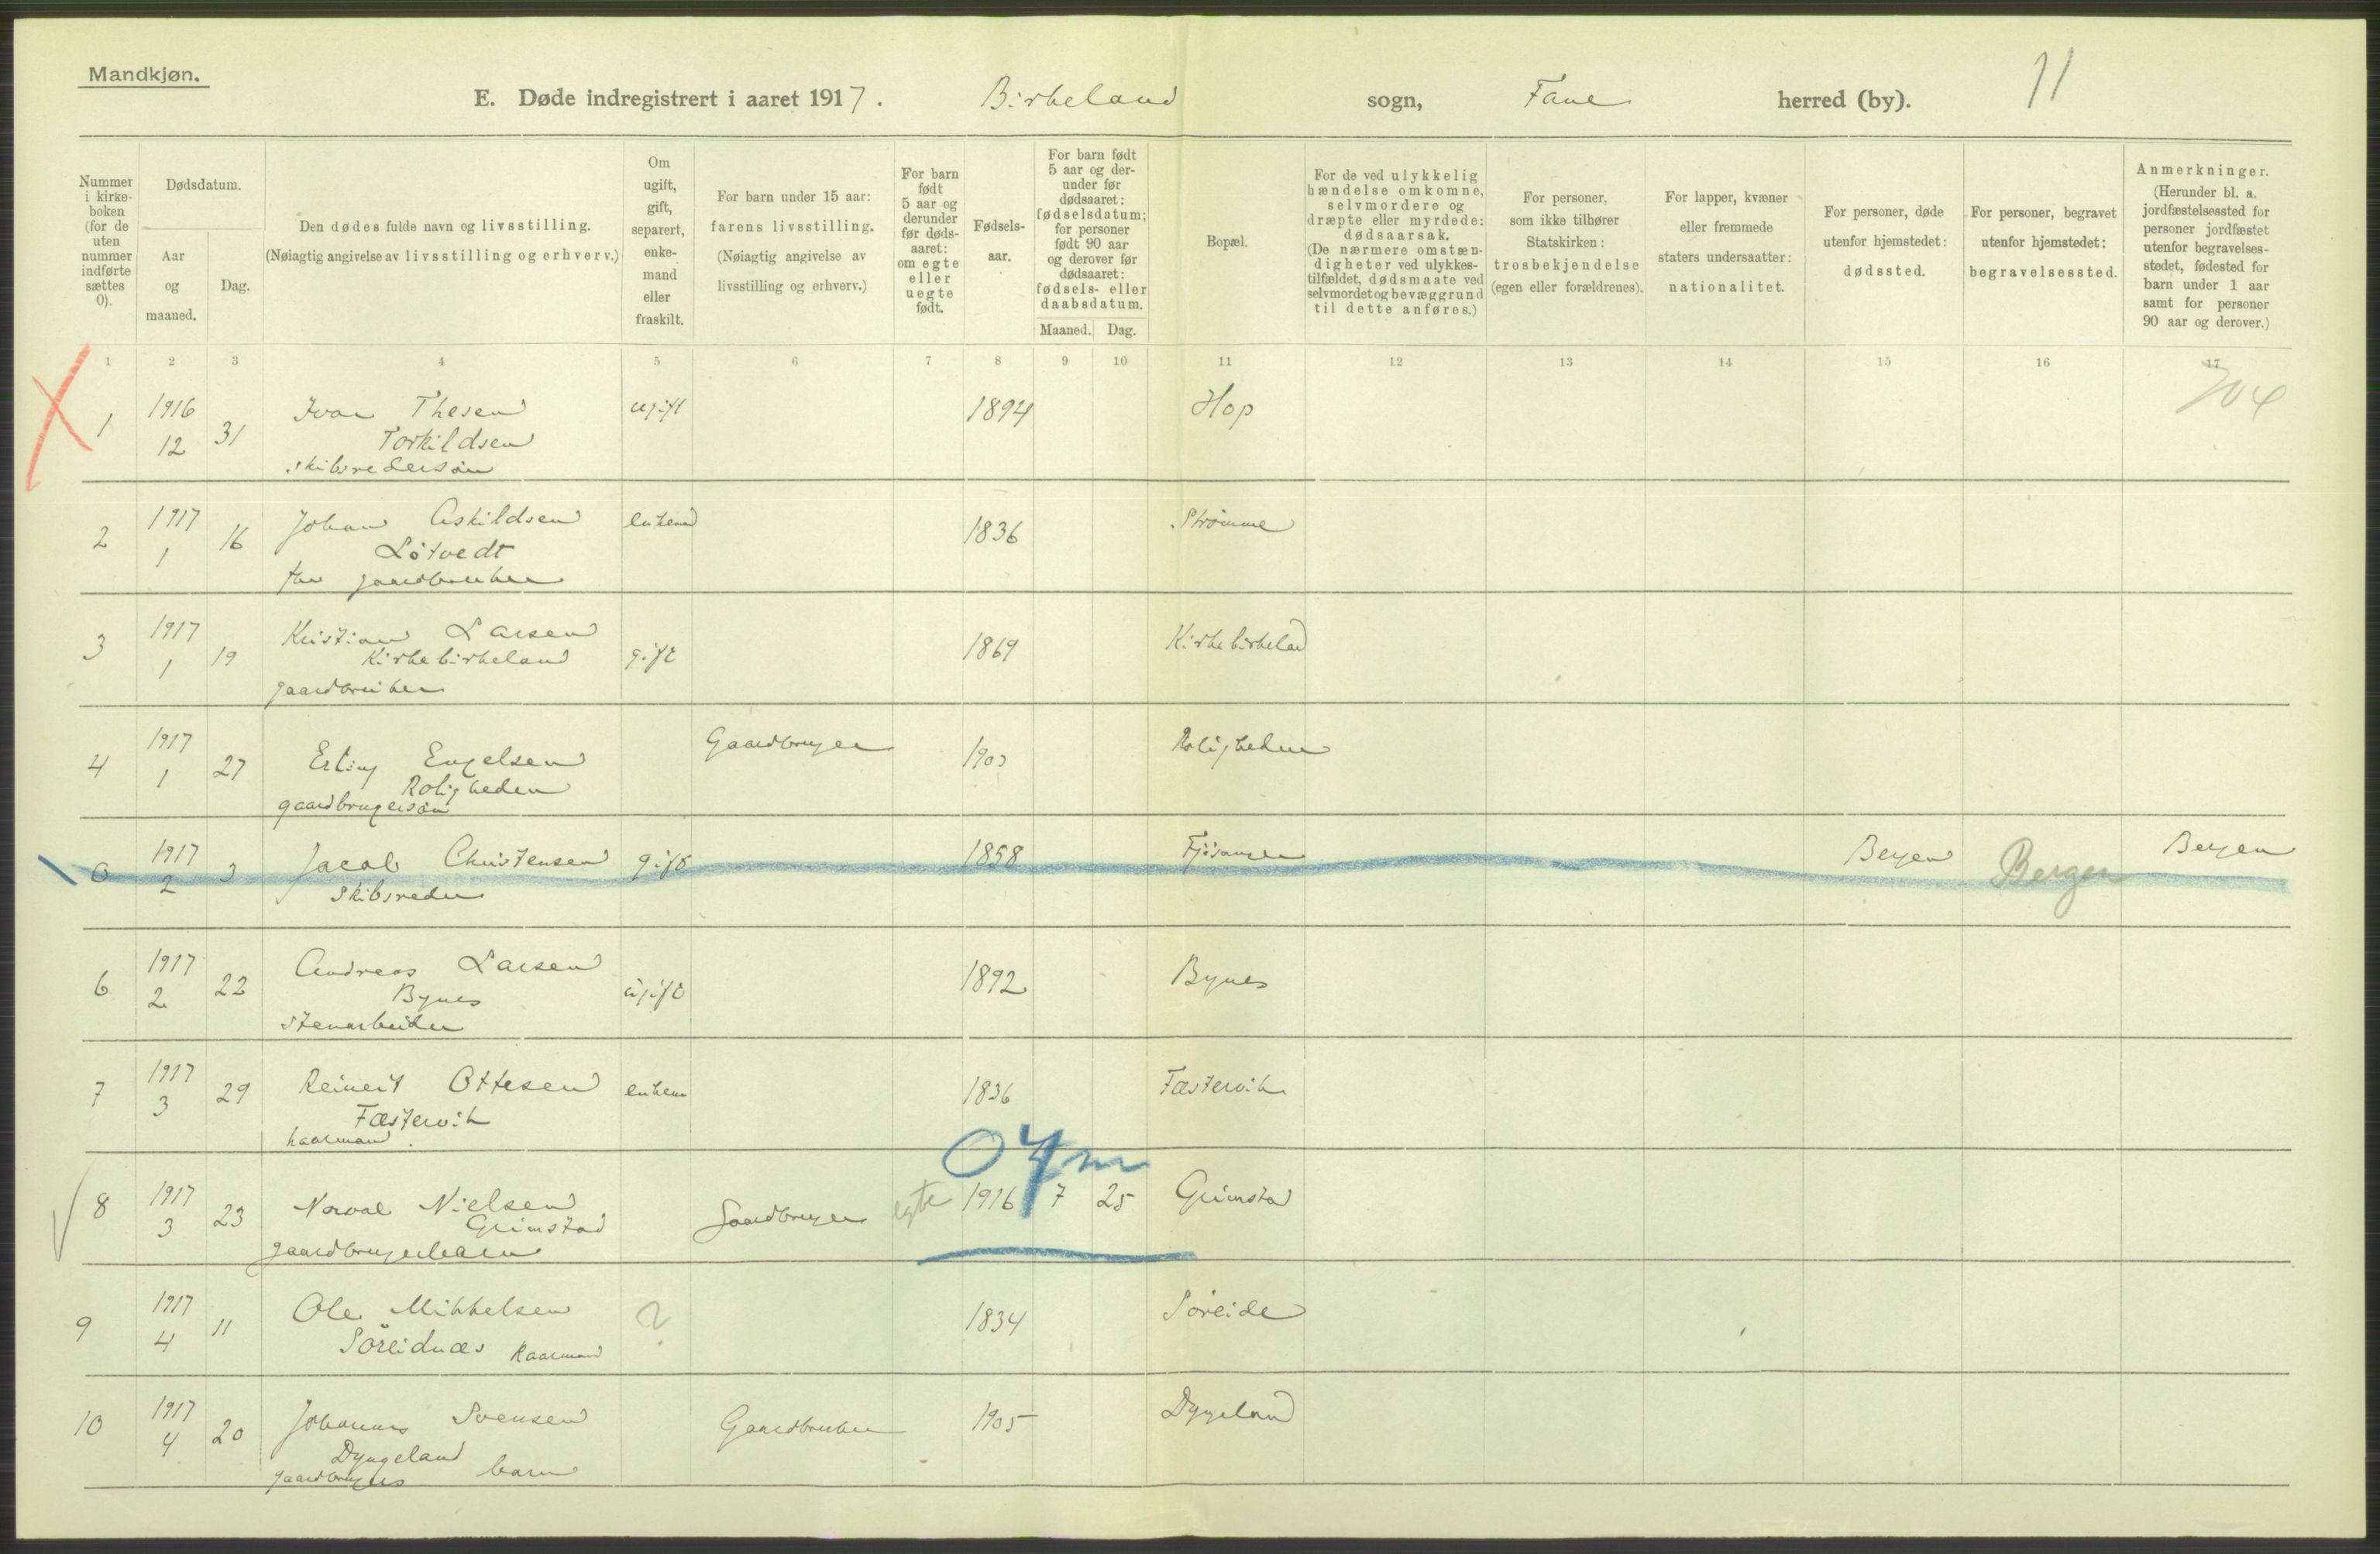 Mandkjøn.
E. Døde indregistrert i aaret 1917. Birkeland sogn, Fane herred (by). 11
Nummer i kirke-boken (for de uten nummer indførte sættes 0).
Dødsdatum.
Aar og maaned.
Dag.
Den dødes fulde navn og livsstilling.
(Nøiagtig angivelse av livsstilling og erhverv.)
Om ugift, gift, separert, enke-mand eller fraskilt.
For barn under 15 aar:
farens livsstilling.
(Nøiagtig angivelse av livsstilling og erhverv.)
For barn født 5 aar og derunder før døds-aaret: om egte eller uegte født.
Fødsels-aar.
For barn født 5 aar og der-under før dødsaaret: fødselsdatum; for personer født 90 aar og derover før dødsaaret: fødsels- eller daabsdatum.
Maaned. Dag.
Bopæl.
For de ved ulykkelig hændelse omkomne, selvmordere og dræpte eller myrdede: dødsaarsak.
(De nærmere omstæn-digheter ved ulykkes-tilfældet, dødsmaate ved selvmordet og bevæggrund til dette anføres.)
For personer, som ikke tilhører Statskirken: trosbekjendelse (egen eller forældrenes).
For lapper, kvæner eller fremmede staters undersaatter: nationalitet.
For personer, døde utenfor hjemstedet: dødssted.
For personer, begravet utenfor hjemstedet: begravelsessted.
Anmerkninger.
(Herunder bl. a. jordfæstelsessted for personer jordfæstet utenfor begravelses-stedet, fødested for barn under 1 aar samt for personer 90 aar og derover.)
1 2 3 4 5 6 7 8 9 10 11 12 13 14 15 16 17
1 1916 12 31 Ivar Thesen ugift 1894 Hop 704
Torkildsen
skibsredersøn
2 1917 1 16 Johan Askildsen enkem 1836 Strømme
Løtvedt
fhv gaardbruker
3 1917 1 19 Kristian Larsen gift 1869 Kirkebirkeland
Kirkebirkeland
gaardbruker
4 1917 1 27 Erling Engelsen Gaardbruger 1903 Roligheden
Roligheden
gaardbrugersøn
0 1917 2 3 Jacob Christensen gift 1858 Fjøsanger Bergen Bergen Bergen
Skibsreder
6 1917 2 22 Andreas Larsen ugift 1892 Bynes
Bynes
stenarbeider
7 1917 3 29 Reinert Ottesen enkem 1836 Fæstervik
Fæstervik
kaarmand.
04m
8 1917 3 23 Norval Nielsen Gaardbruger egte 1916 7 25 Grimstad
Grimstad
gaardbrugerbarn
9 1917 4 11 Ole Mikkelsen ? 1834 Søreide
Søreidnæs kaarmand
10 1917 4 20 Johannes Svensen Gaardbruker 1905 Dyngeland
Dyngeland
gaardbrugers barn